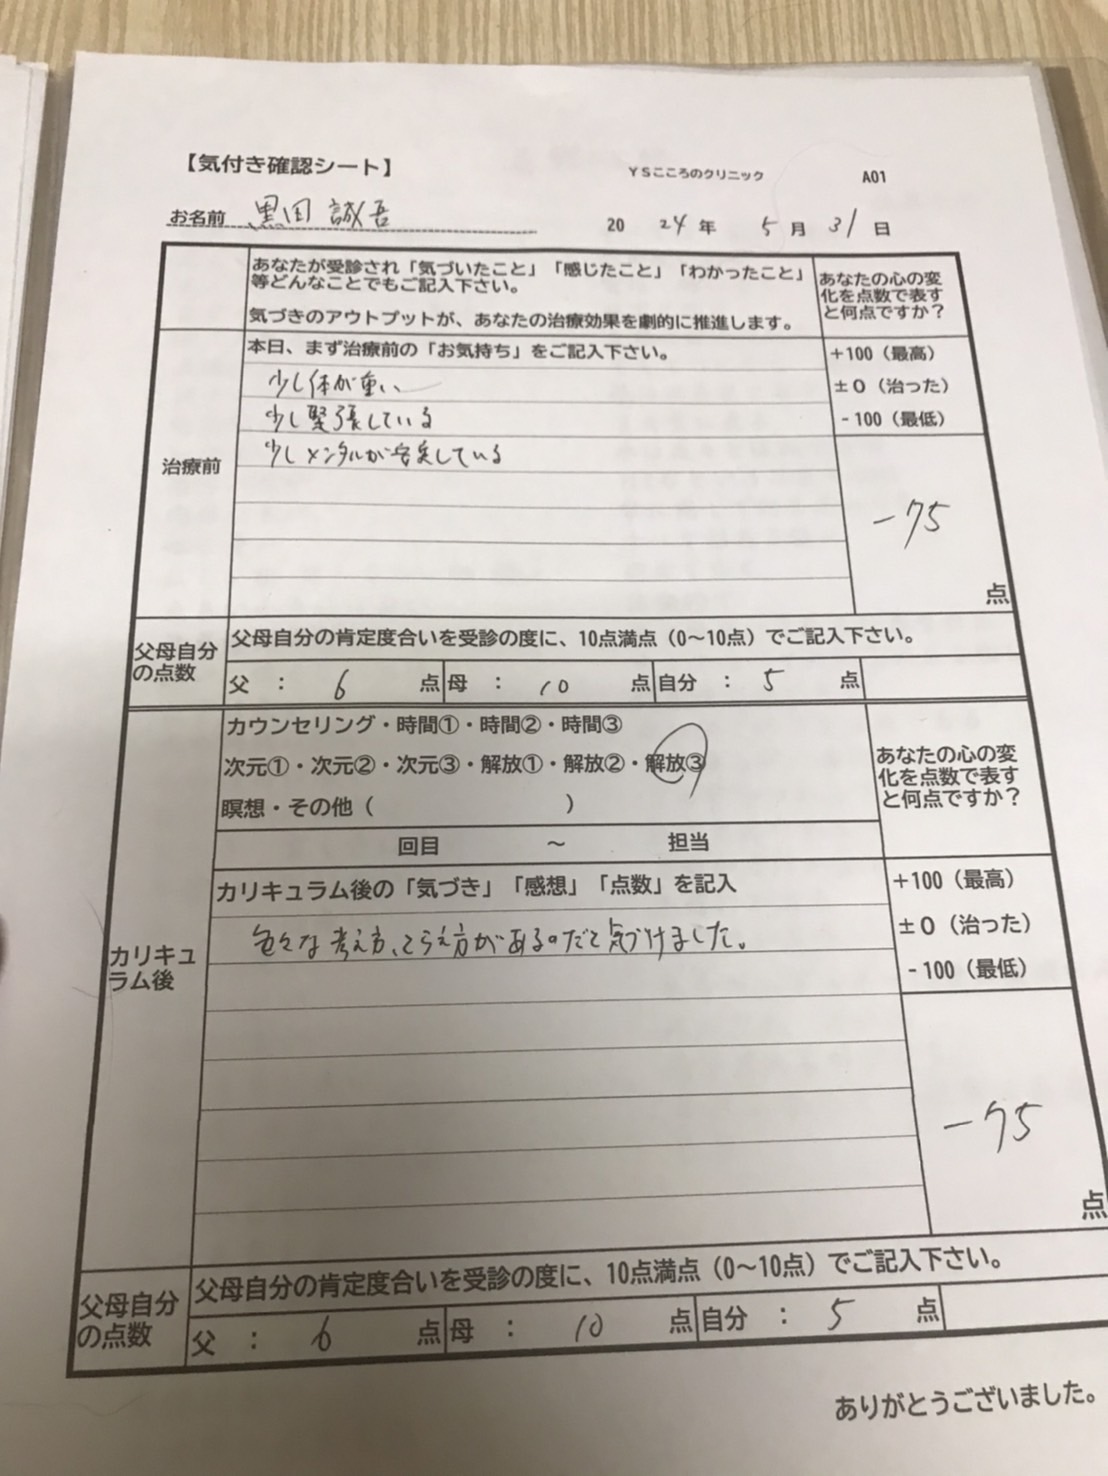 【気付き確認シート】 YSこころのクリニック A01
お名前 黒田 誠吾 2024年 5月31日
あなたが受診され「気づいたこと」「感じたこと」「わかったこと」
等どんなことでもご記入下さい。
気づきのアウトプットが、あなたの治療効果を劇的に推進します。
あなたの心の変
化を点数で表す
と何点ですか？
治療前
本日、まず治療前の「お気持ち」をご記入下さい。
少し体が重い
少し緊張している
少しメンタルが安定している
+100（最高）
±0（治った）
-100（最低）
-75
点
父母自分
の点数
父母自分の肯定度合いを受診の度に、10点満点（0～10点）でご記入下さい。
父 ： 6 点 母 ： 10 点 自分 ： 5 点
カリキュ
ラム後
カウンセリング・時間①・時間②・時間③
次元①・次元②・次元③・解放①・解放②・解放③
瞑想・その他（ ）
回目 ～ 担当
あなたの心の変
化を点数で表す
と何点ですか？
カリキュラム後の「気づき」「感想」「点数」を記入
色々な考え方、とらえ方があるのだと気づけました。
+100（最高）
±0（治った）
-100（最低）
-75
点
父母自分
の点数
父母自分の肯定度合いを受診の度に、10点満点（0～10点）でご記入下さい。
父 ： 6 点 母 ： 10 点 自分 ： 5 点
ありがとうございました。